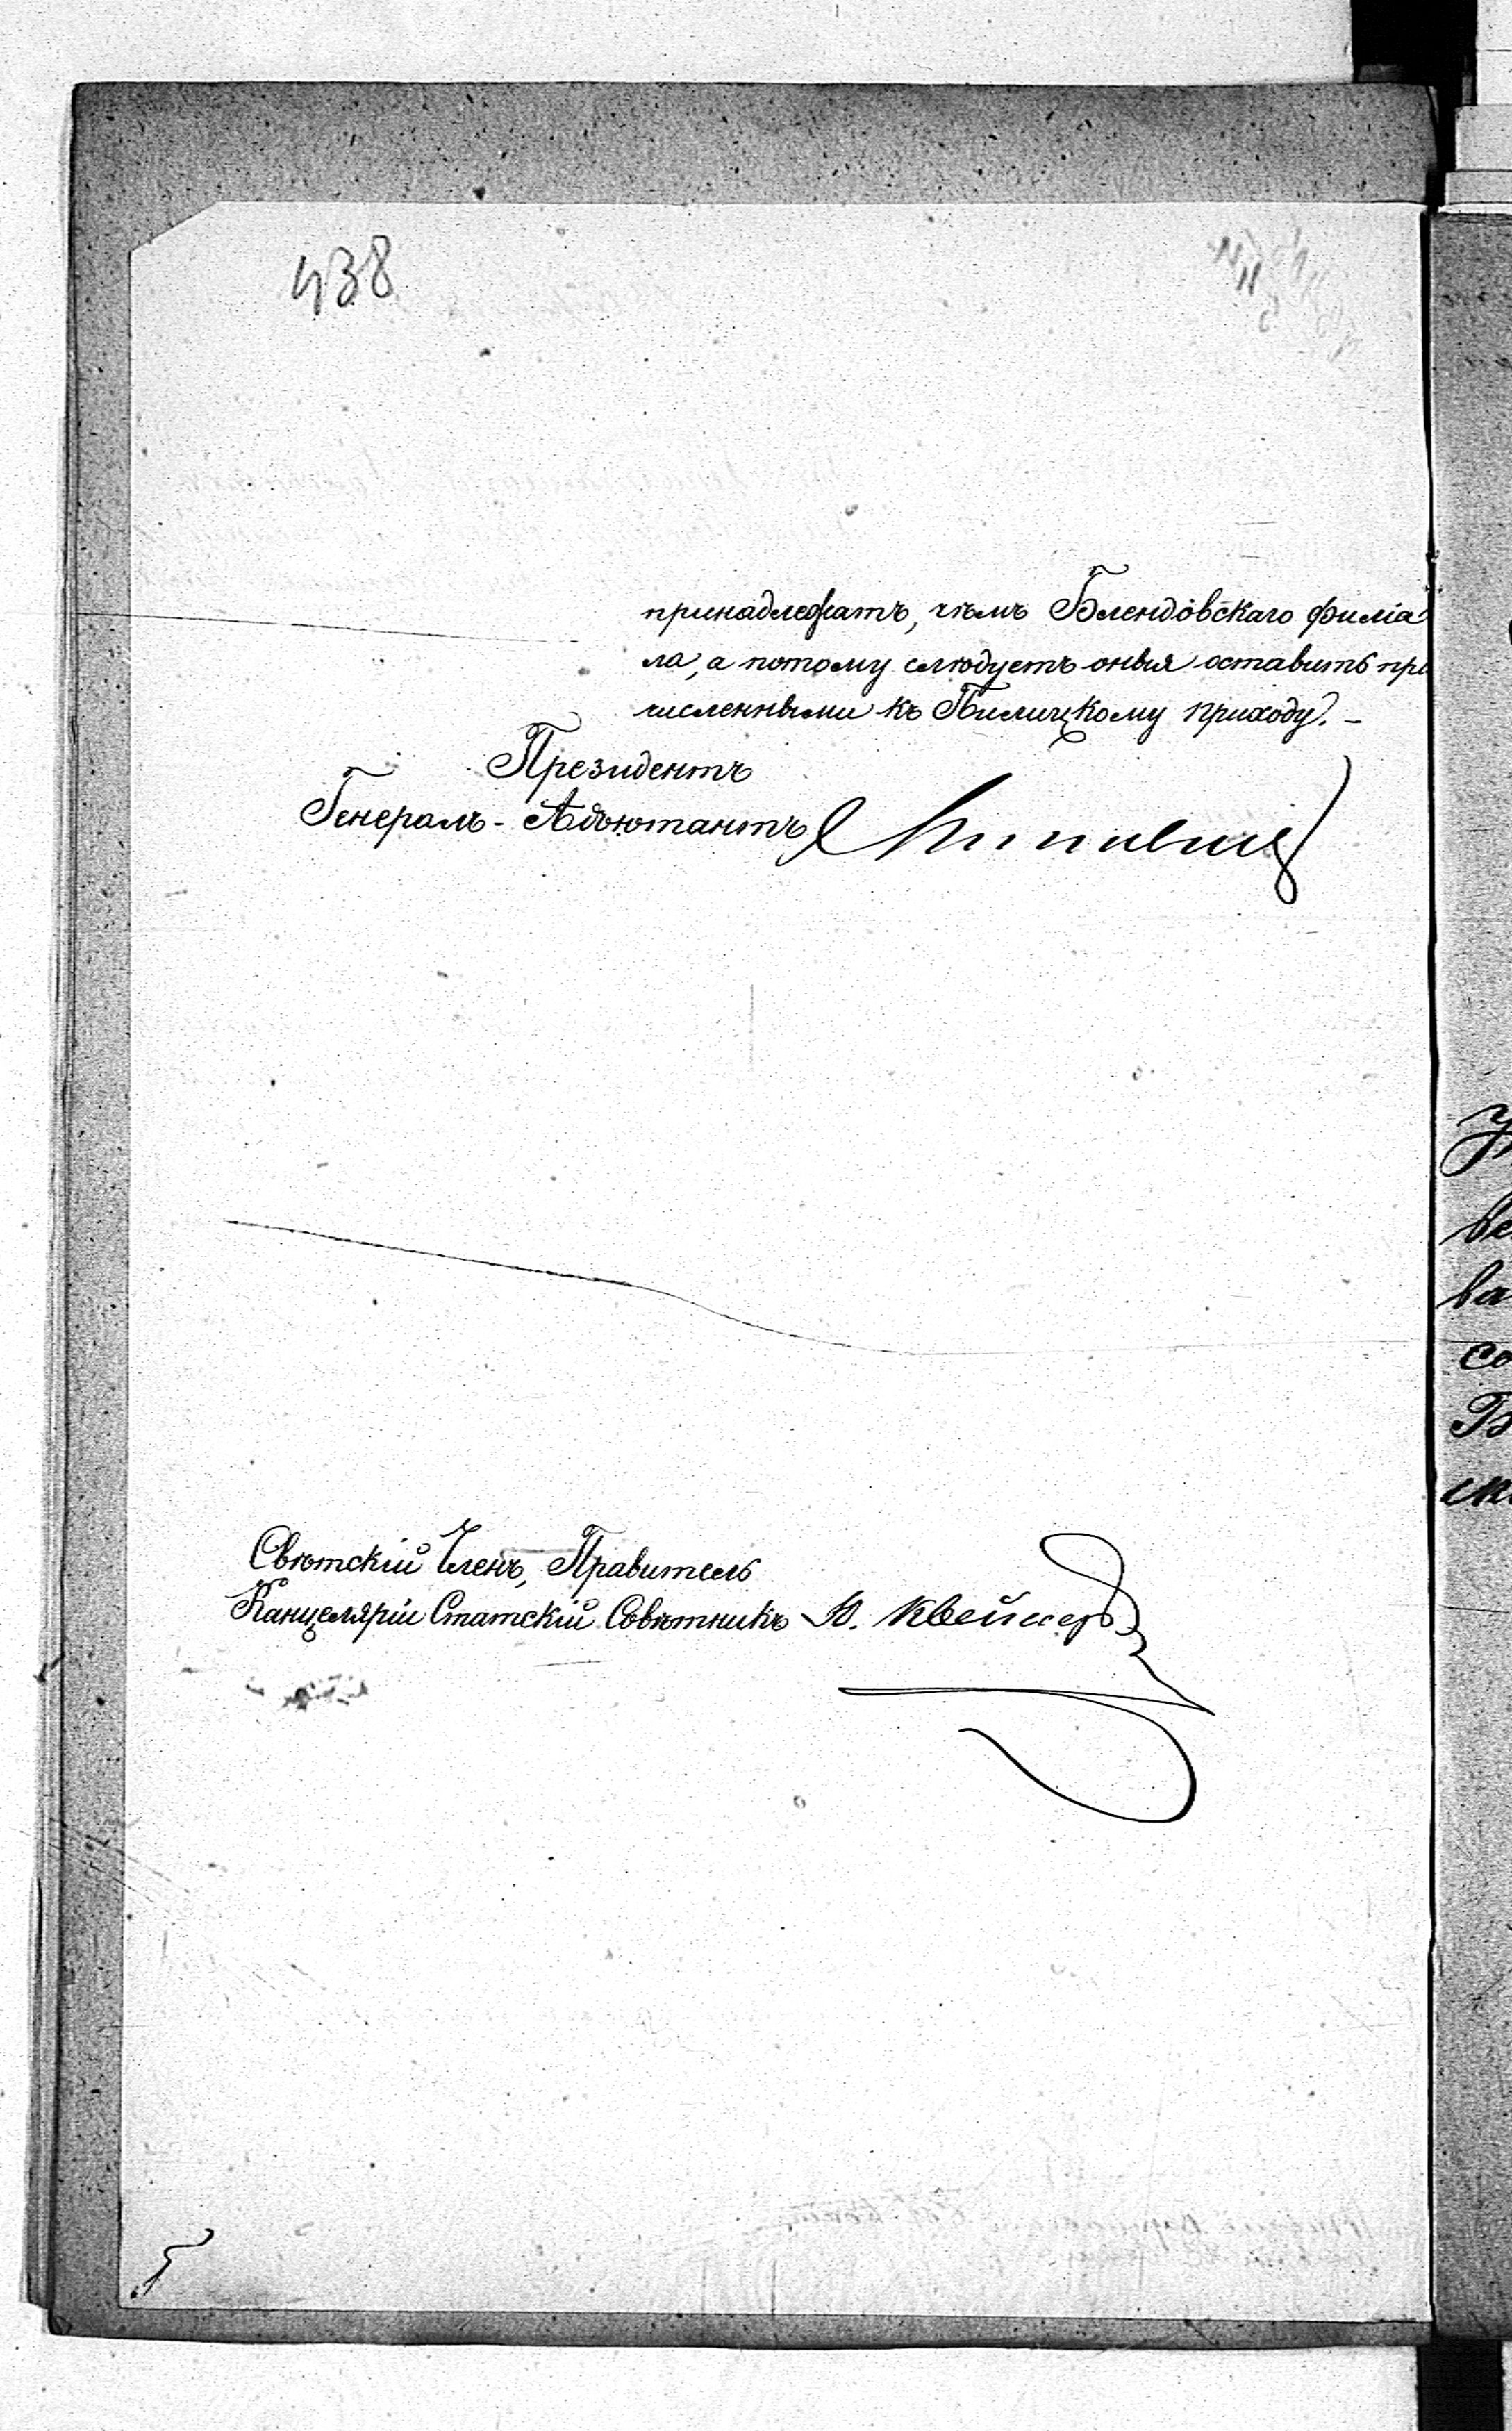 438
принадлежатъ, чѣмъ Блендовскаго филіа
ла, а потому слѣдуетъ оныя оставить при
численными къ Пилицкому приходу. –
Президентъ
Генералъ-Адъютантъ
Свѣтскій Членъ, Правитель
Канцеляріи Статскій Совѣтникъ Ю.